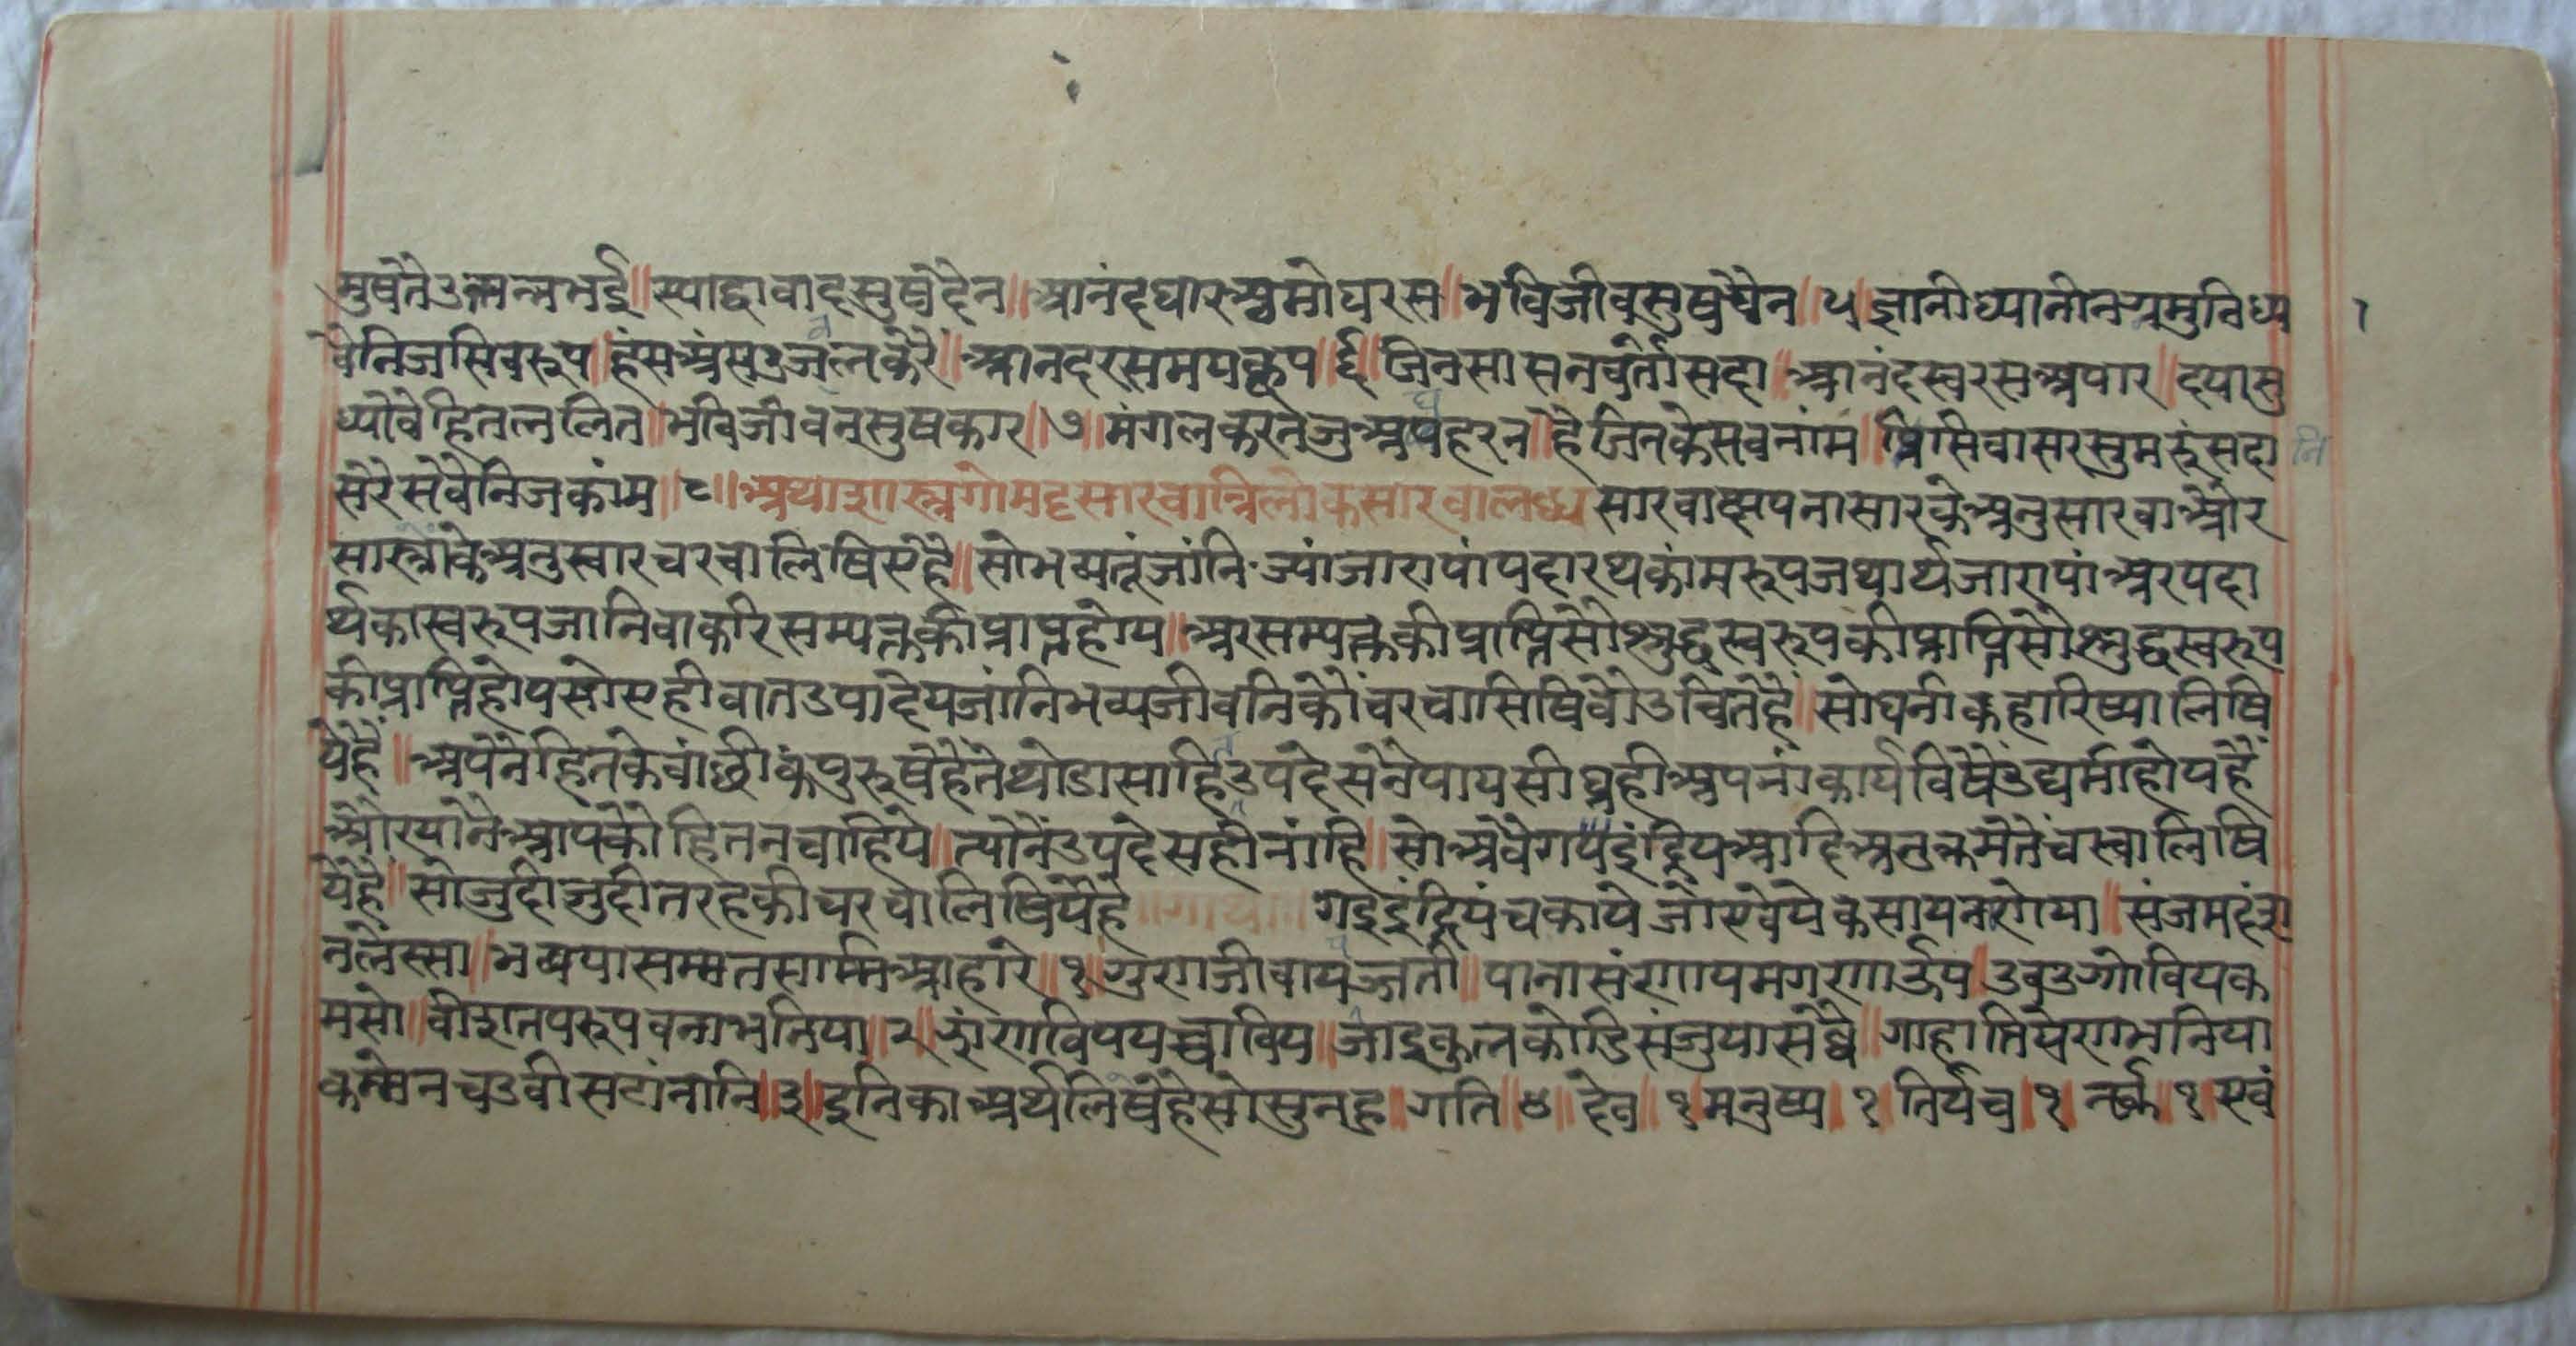 मुषतेउत्पन्नभई॥ स्याद्वादवाद सुषदेन॥ आनंदधारअमोघरस॥ भविजीवसुषचेन॥ ५॥ ज्ञानीध्यानीनग्रमुनिध्य १
वेनिजसिवरूप॥ हंसअंसउजलकरें॥ आनदरसमयकूप॥ ६॥ जिनसासनवर्तोसदा॥ आनंदस्वरसअपार॥ दयासु
ध्यावेहितललित॥ भविजीवनसुषकार॥ ७॥ मंगलकरनजुअघहरन॥ हैजिनकेसवनांम॥ निसिवासरसुमरूंसदा नि
सरेसेवेनिजकांम॥ ८॥ अथाशास्त्रगोमट्टसारवात्रिलोकसारवालध्यसारवाक्षपनासारकेअनुसारवाऔर
सास्त्रोंकेअनुस्वारचरचालिषिएहै॥ सोभव्यतूंजांनि ज्यांजारापांपदारथकांमरूपजथार्थजारापांअरपदा
र्थकास्वरूपजानिवाकरिसम्यक्तकीप्राप्तहोय॥ अरसम्यक्तकीप्राप्तिसौंशुद्धस्वरूपकीप्राप्तिसौंशुद्धस्वरूप
कीप्राप्तिहोयसोएहीवातउपादेयजांनिभव्यजीवनिकौंचरचासिषिवोउचितहै॥ सोघनीकहारिष्यालिषि
येहैं॥ अपनेहितकेवांछीकपुरूषहैतेथोडासाहिउपदेसनेपायसीघ्रहीअपनांकार्यविषैउद्यमीहोयहैं
औरयोनेआपकोहितनचाहिये॥ त्योनेंउपदेसहीनांहि॥ सोअवेगयइंद्रियआदिअनुक्रमतेचरचालिषि
येहै॥ सोजुदीजुदीतरहकीचरचालिषियेहै॥ गाथा॥ गइइंद्रियंचकायेजोएवेयेकसायनाणेया॥ संजमदंश
नलेस्सा॥ भव्ययासम्मतसार्मिआहारे॥ १॥ गुराजीवायज्जती॥ पानासंरणायमगरणार्ऊय॥ उवउग्गोवियक
मसो॥ वीशनपरूपवनाभनिया॥ २॥ झांरणाविपयच्चाविय॥ जाइकुलकोडिसंजुयासव्वे॥ गाहातियेराभनिया
कमेनचउवीसटांनानि॥ ३॥ इनिकाअर्थलिषेहैसोसुनहु॥ गति॥ ४॥ देव॥ १॥ मनुष्य॥ १॥ तिर्यंच॥ १॥ नर्क॥ १॥ एवं